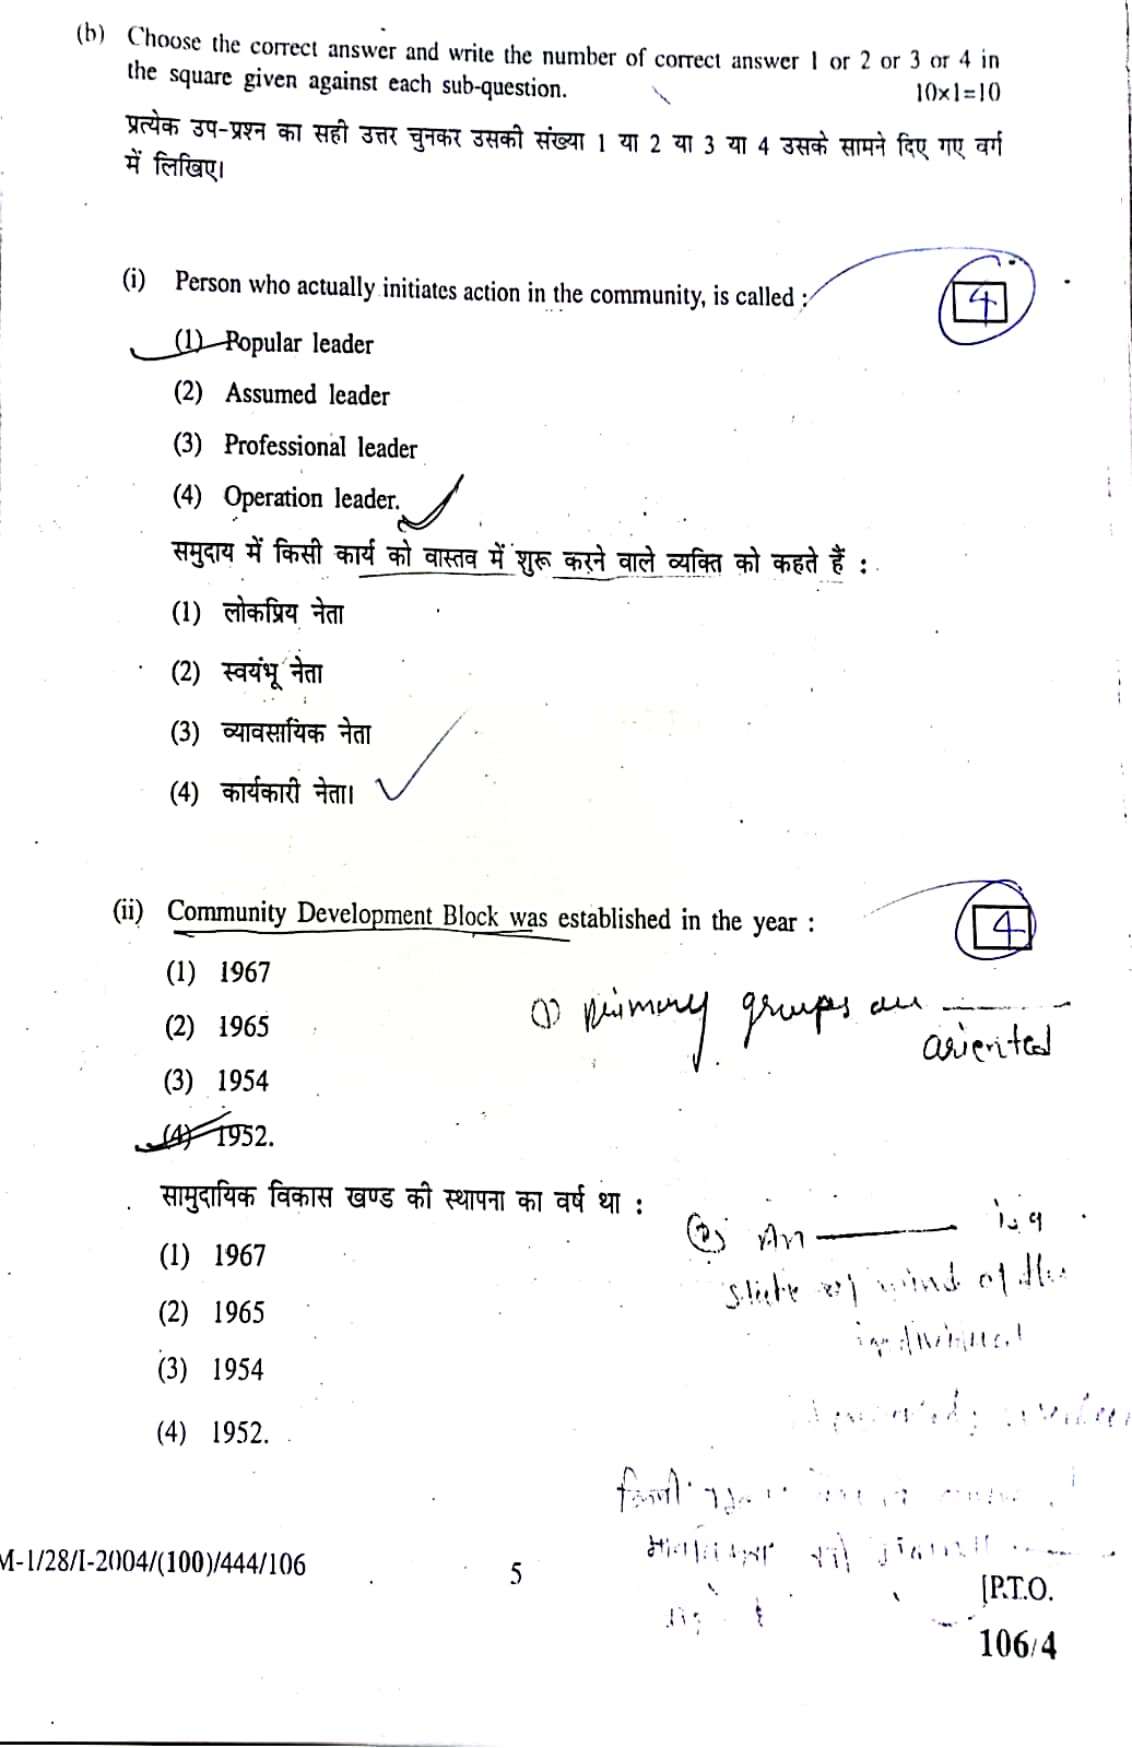 (b) Choose the correct answer and write the number of correct answer 1 or 2 or 3 or 4 in
the square given against each sub-question. 10×1=10
प्रत्येक उप-प्रश्न का सही उत्तर चुनकर उसकी संख्या 1 या 2 या 3 या 4 उसके सामने दिए गए वर्ग
में लिखिए।
(i) Person who actually initiates action in the community, is called : 4
(1) Popular leader
(2) Assumed leader
(3) Professional leader
(4) Operation leader.
समुदाय में किसी कार्य को वास्तव में शुरू करने वाले व्यक्ति को कहते हैं :
(1) लोकप्रिय नेता
(2) स्वयंभू नेता
(3) व्यावसायिक नेता
(4) कार्यकारी नेता।
(ii) Community Development Block was established in the year : 4
(1) 1967
(2) 1965
(3) 1954
(4) 1952.
① primary groups are ———
oriented
सामुदायिक विकास खण्ड की स्थापना का वर्ष था :
(1) 1967
(2) 1965
(3) 1954
(4) 1952.
② An ——— is a
state of mind of the
individual
M-1/28/I-2004/(100)/444/106
5
[P.T.O.
106/4